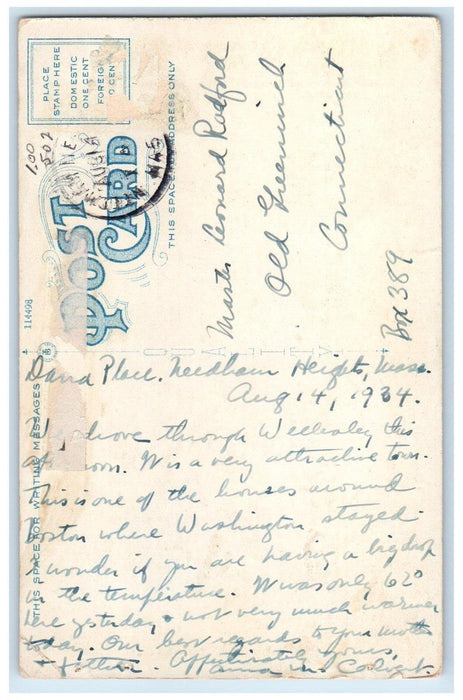 PLACE
STAMP HERE
DOMESTIC
ONE CENT
FOREIGN
O CEN
1.00
502
POST
CARD
THIS SPACE ADDRESS ONLY
Master Leonard Radford
Old Greenwich
Connecticut
Box 389
114498
QUALITY
THIS SPACE FOR WRITING MESSAGES
Dana Place. Needham Heights, Mass.
Aug 14, 1934.
We drove through Wellesley this
afternoon. W is a very attractive town.
This is one of the houses around
Boston where Washington stayed.
I wonder if you are having a big drop
in the temperature. It was only 62°
here yesterday & not very much warmer
today. Our best regards to your mother
& father. Affectionately yours,
Anna M. Calvert.